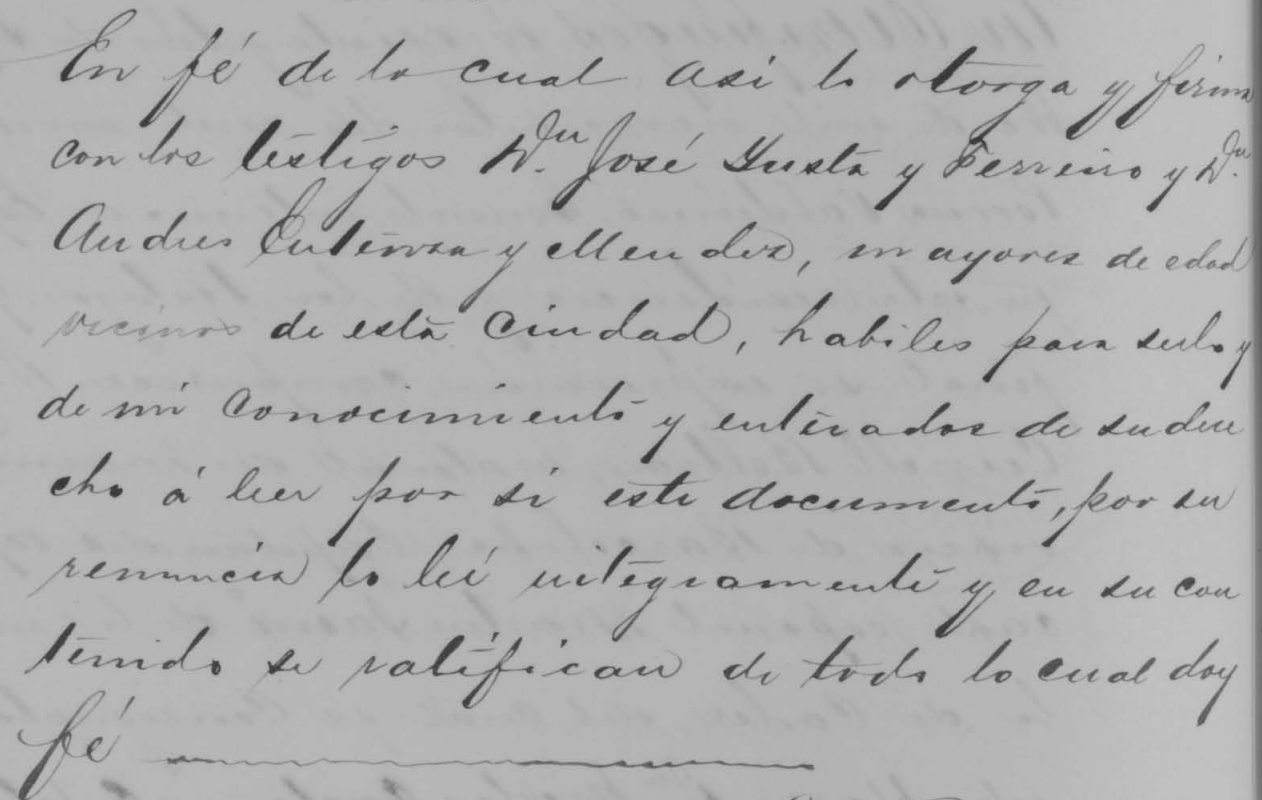 En fé de lo cual asi lo otorga y firma
con los testigos Dn. José Yusta y Ferreiro y Dn.
Andres Entenza y Mendez, mayores de edad
vecinos de esta Ciudad, habiles para serlo y
de mi conocimiento y enterados de su dere
cho á leer por si este documento, por su
renuncia lo leí integramente y en su con
tenido se ratifican de todo lo cual doy
fé